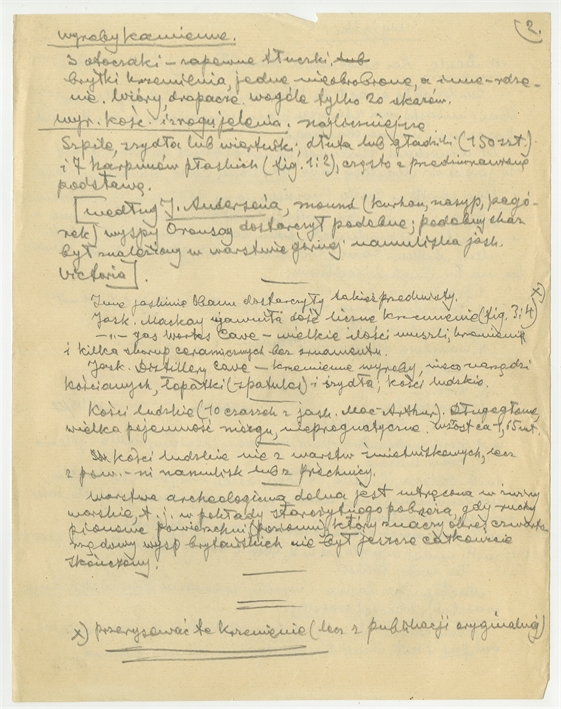 2.
wyroby kamienne.
3 otoczaki – zapewne tłuczki, lub
bryłki krzemienia, jedne nieobrobione, a inne – rdze-
nie. Wióry, drapacze wogóle tylko 20 okazów.
wyr. kośc. i z rogu jelenia. najliczniejsze
Szpile, szydła lub wiertniki, dłuta lub gładziki (150 szt.)
i 7 harpunów płaskich (fig. 1:2), często z przedziurawioną
podstawą.
[według J. Andersona, mound (kurhan, nasyp, pagó-
rek) wyspy Oronsay dostarczył podobne; podobny okaz
był znaleziony w warstwie górnej namuliska jask.
Victoria].
Inne jaskinie Obanu dostarczyły takież przedmioty.
Jask. Mackay ujawniła dość liczne krzemienie (fig. 3:4) x)
–„– Gas Works Cave – wielkie ilości muszli, krzemienie
i kilka skorup ceramicznych bez ornamentu.
Jask. Distillery Cave – krzemienne wyroby, nieco narzędzi
kościanych, łopatki (spatulas) i szydła, kości ludzkie.
Kości ludzkie (10 czaszek z jask. Mac-Arthur). Długogłowe,
wielka pojemność mózgu, nieprognatyczne wzrost ca 1,65 mt.
Kości ludzkie nie z warstw śmietniskowych, lecz
z pow.-ni namulisk lub z próchnicy.
Warstwa archeologiczna dolna jest wtrącona w żwiry
morskie, t.j. w pokłady starożytnego pobrzeża, gdy ruchy
pionowe powierzchni (poziomu), który znaczy okres czwarto-
rzędowy wysp brytańskich nie był jeszcze całkowicie
skończony.
x) przerysować te krzemienie (lecz z publikacji oryginalnej)